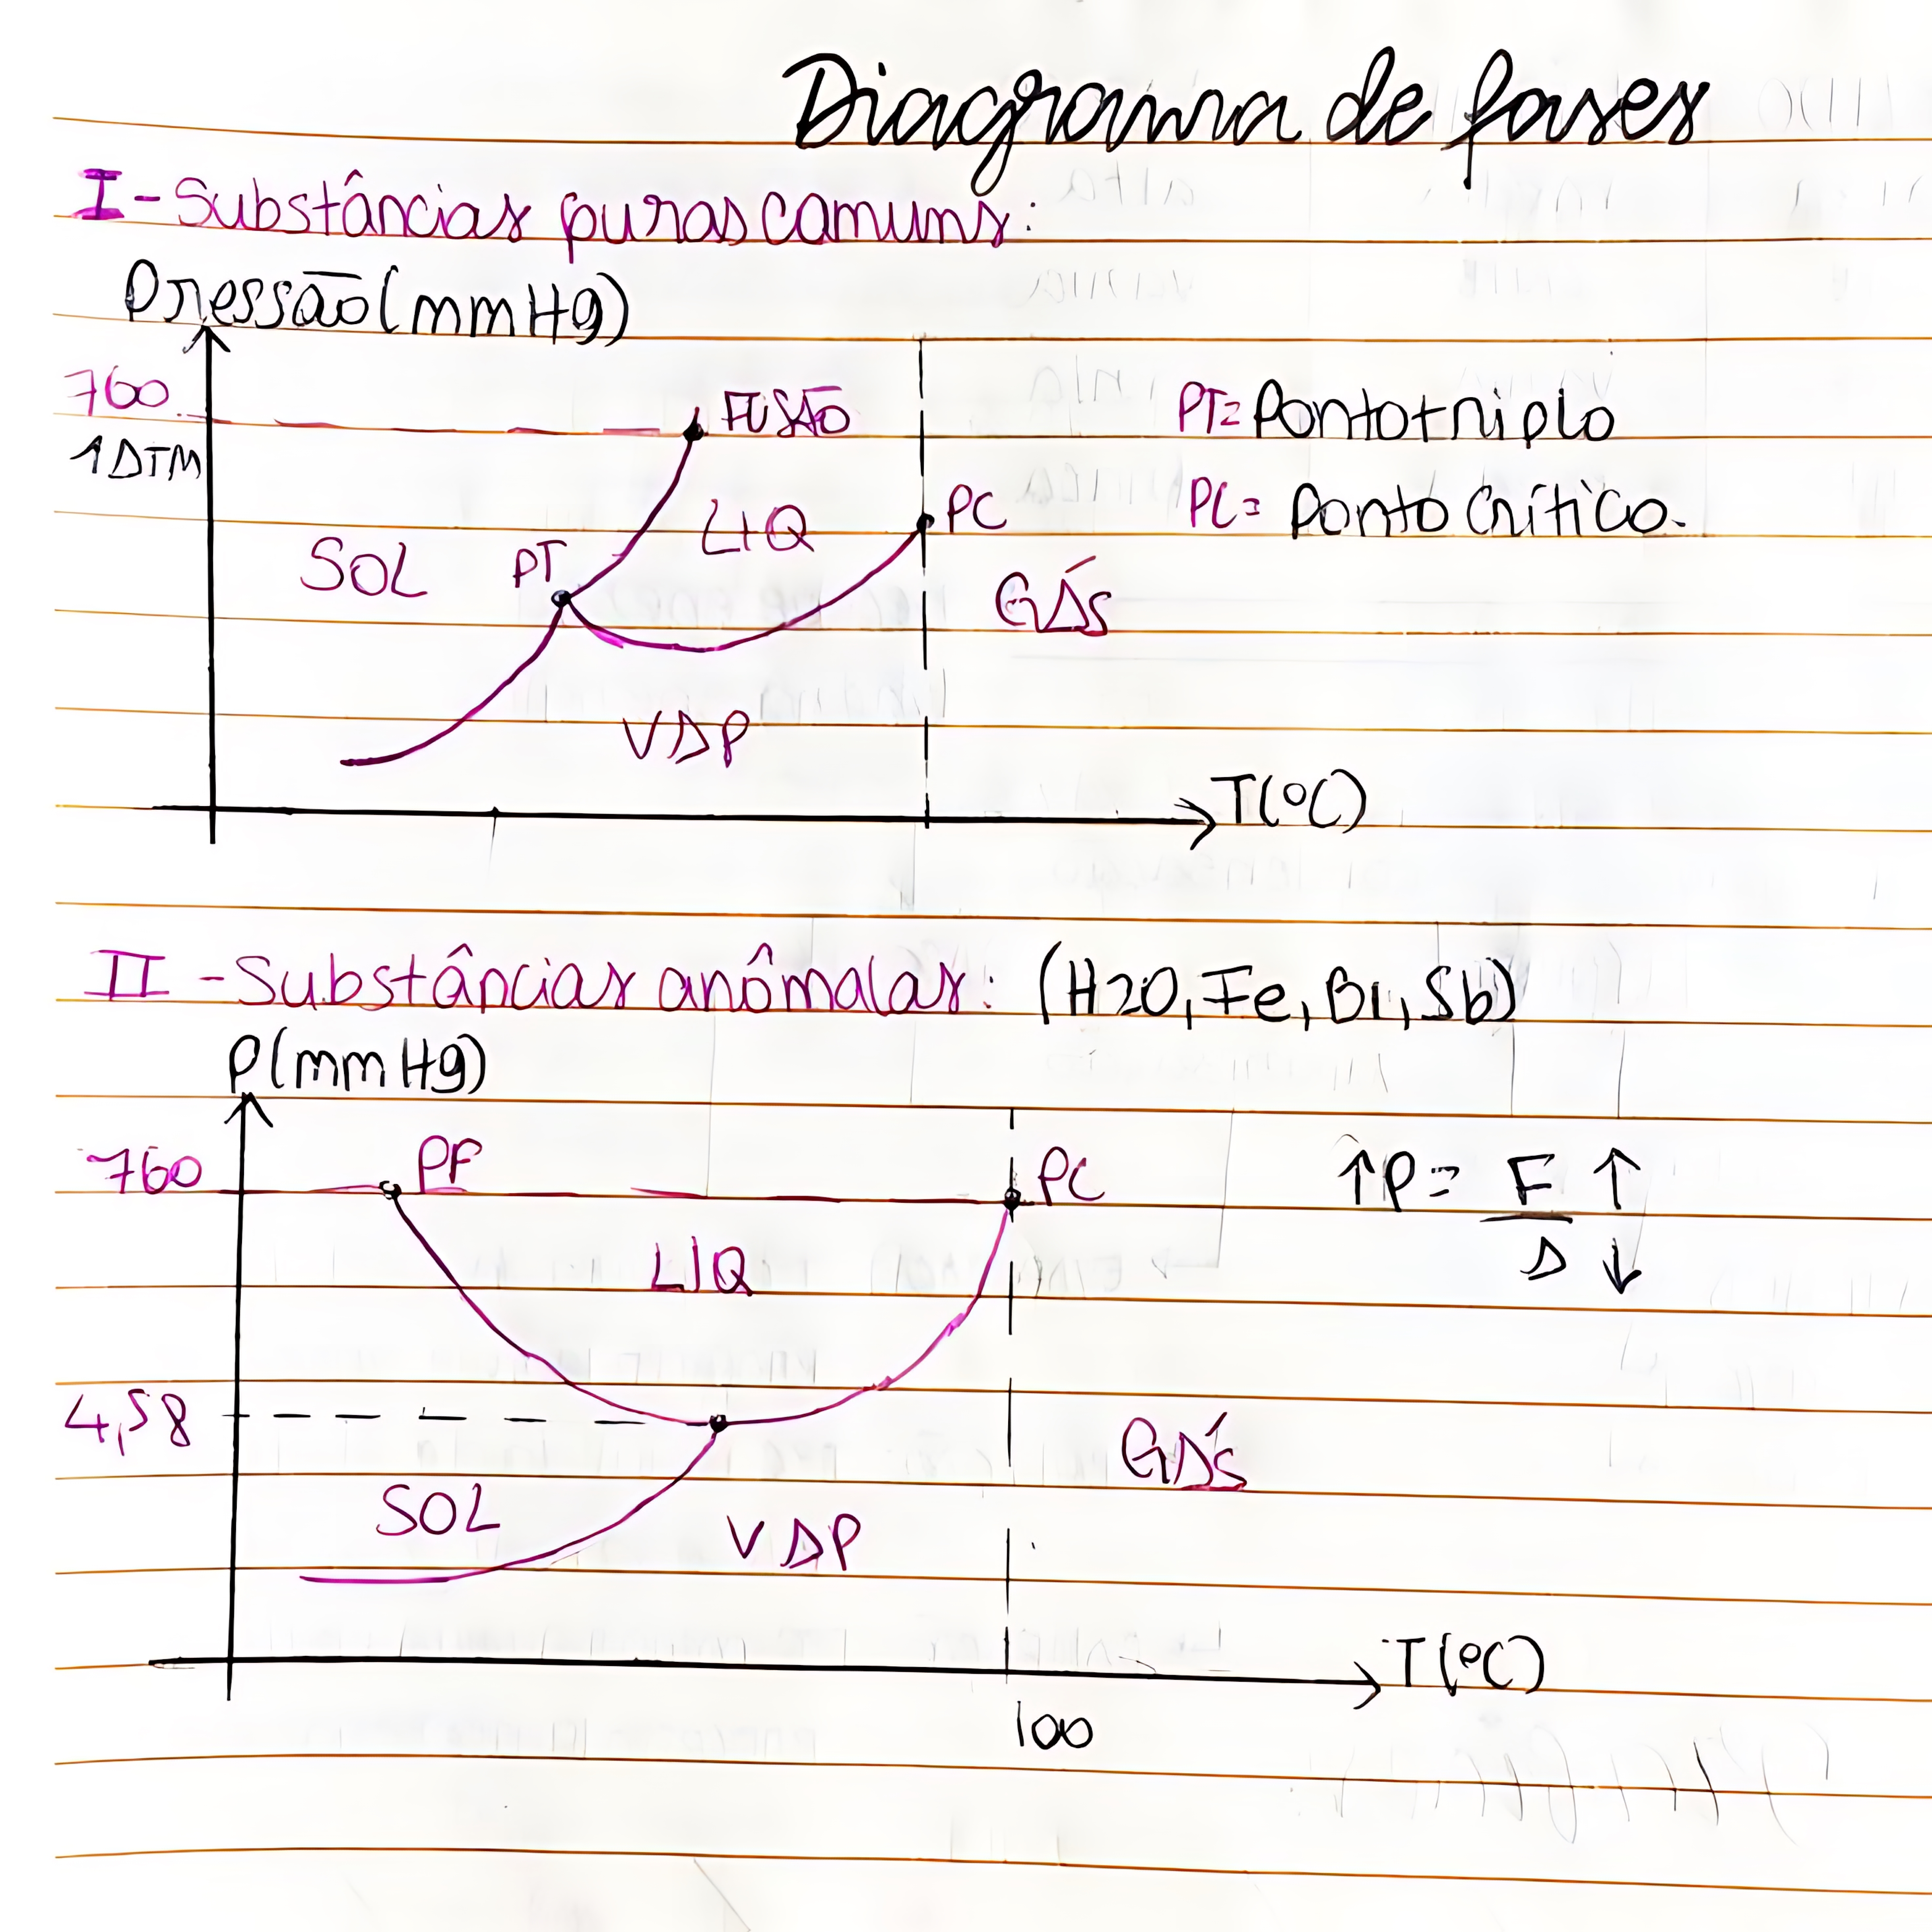 Diagrama de fases
I - Substâncias puras comuns:
Pressão (mmHg)
760
1 ATM
FUSÃO
PT = Ponto triplo
PC
PC = Ponto Crítico.
LIQ
SOL
PT
GÁS
VAP
T(ºC)
II - Substâncias anômalas: (H2O, Fe, Bi, Sb)
P(mmHg)
760
PF
PC
↑P = F ↑
A ↓
LIQ
4,58
GÁS
SOL
VAP
T(ºC)
100